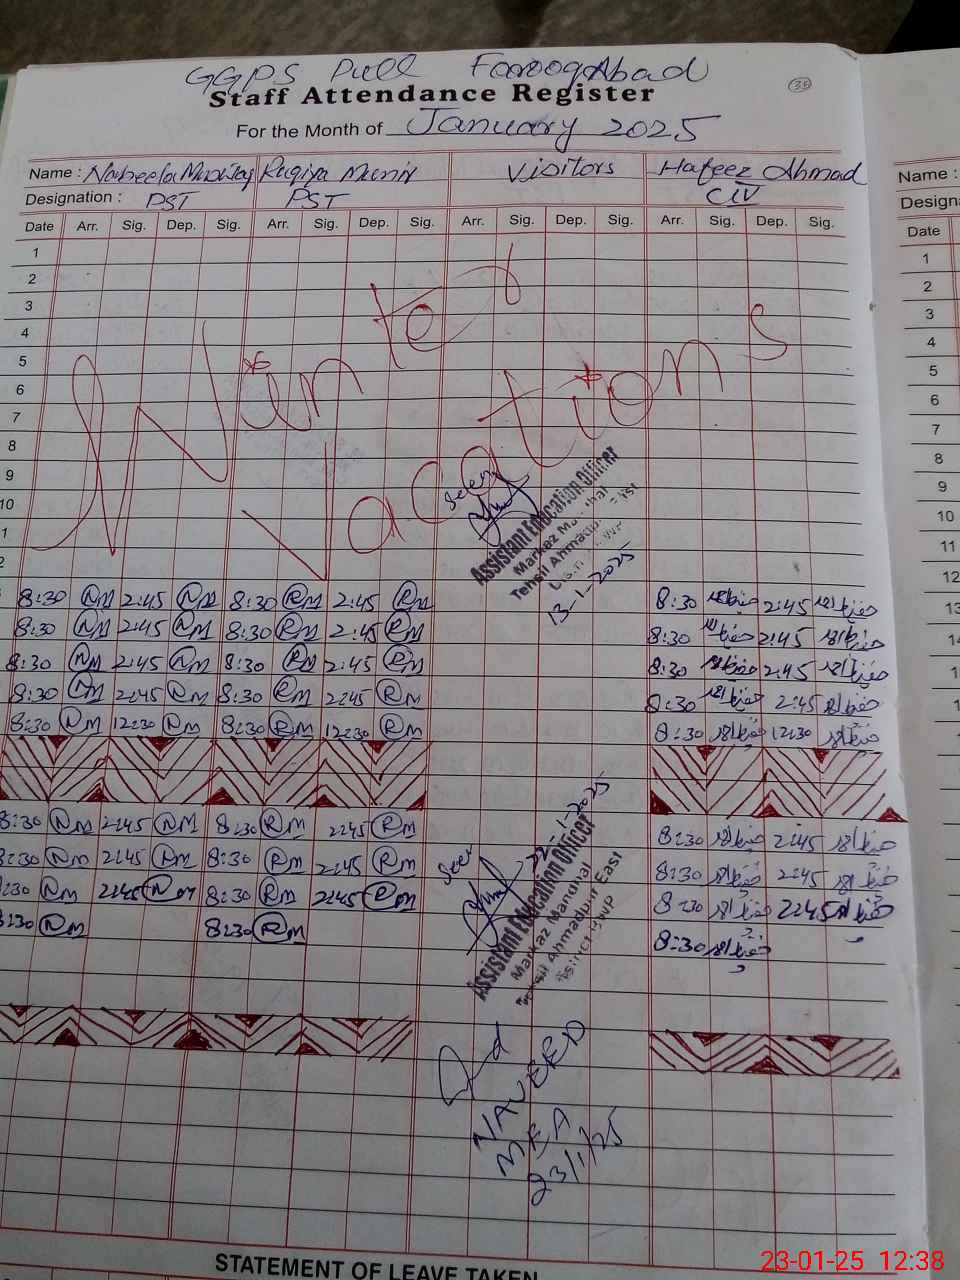 GGPS Pull Farooq Abad
35
Staff Attendance Register
For the Month of January 2025
Name : Nabeela Ruqiya Munir Visitors Hafeez Ahmad
Designation : PST PST CIV
Date Arr. Sig. Dep. Sig. Arr. Sig. Dep. Sig. Arr. Sig. Dep. Sig. Arr. Sig. Dep. Sig.
1
2
3
4
5
6
7
8
9
10
Winter
Vacations
Seen
Assistant Education Officer
Markaz
Tehsil
13-1-2025
8:30 NM 2:45 NM 8:30 RM 2:45 RM 8:30 حفیظ احمد 2:45 حفیظ احمد
8:30 NM 2:45 NM 8:30 RM 2:45 RM 8:30 حفیظ احمد 2:45 حفیظ احمد
8:30 NM 2:45 NM 8:30 RM 2:45 RM 8:30 حفیظ احمد 2:45 حفیظ احمد
8:30 NM 2:45 NM 8:30 RM 2:45 RM 8:30 حفیظ احمد 2:45 حفیظ احمد
8:30 NM 12:30 NM 8:30 RM 12:30 RM 8:30 حفیظ احمد 12:30 حفیظ احمد
8:30 NM 2:45 NM 8:30 RM 2:45 RM 8:30 حفیظ احمد 2:45 حفیظ احمد
8:30 NM 2:45 NM 8:30 RM 2:45 RM 8:30 حفیظ احمد 2:45 حفیظ احمد
8:30 NM 2:45 NM 8:30 RM 2:45 RM 8:30 حفیظ احمد 2:45 حفیظ احمد
8:30 NM 8:30 RM 8:30 حفیظ احمد
Seen
22-1-2025
Assistant Education Officer
Markaz
Tehsil Ahmadpur East
District BWP
NAVEED
MEA
23/1/25
STATEMENT OF LEAVE TAKEN
Name :
Date
1
2
3
4
5
6
7
8
9
10
11
12
13
23-01-25 12:38